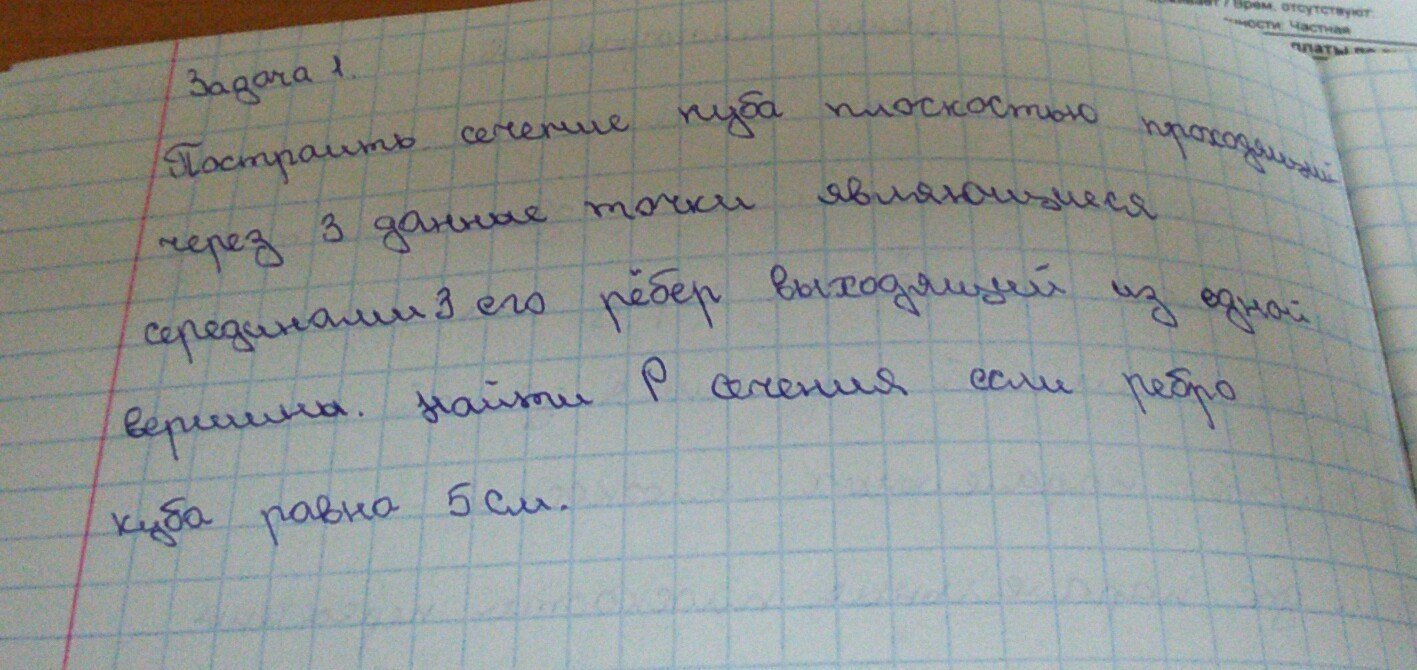 / Врем. отсутствуют.
ности: Частная
платы по
Задача 1.
Пастраить сечение куба плоскостью проходящий
через 3 данные точки являющиеся
серединами 3 его рёбер выходящий из одной
вершины. найти P сечения если ребро
куба равна 5 см.